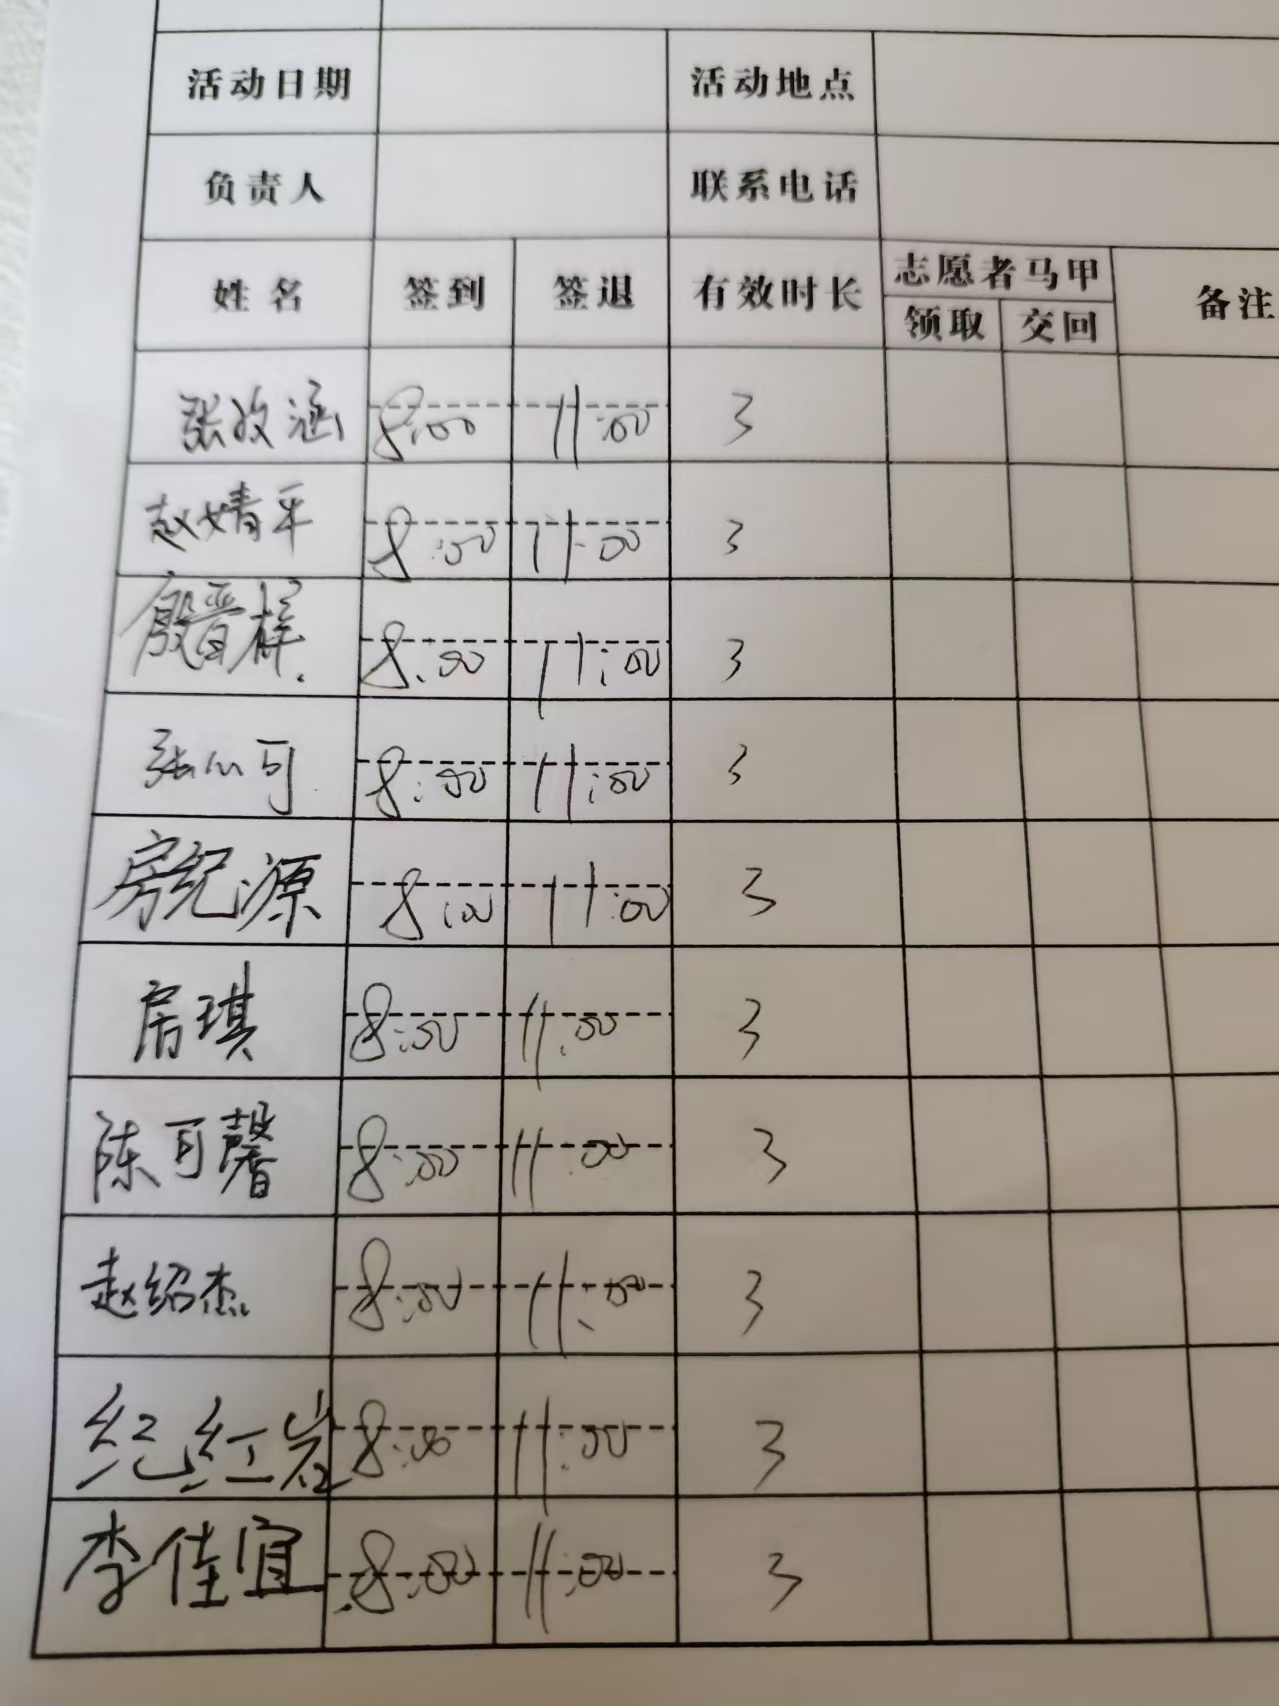 活动日期 活动地点
负责人 联系电话
姓名 签到 签退 有效时长 志愿者马甲 备注
领取 交回
张政涵 8:00 11:00 3
赵婧平 8:00 11:00 3
殷晋样 8:00 11:00 3
张心可 8:00 11:00 3
房纪源 8:00 11:00 3
房琪 8:00 11:00 3
陈可馨 8:00 11:00 3
赵绍杰 8:00 11:00 3
纪红岩 8:00 11:00 3
李佳宜 8:00 11:00 3